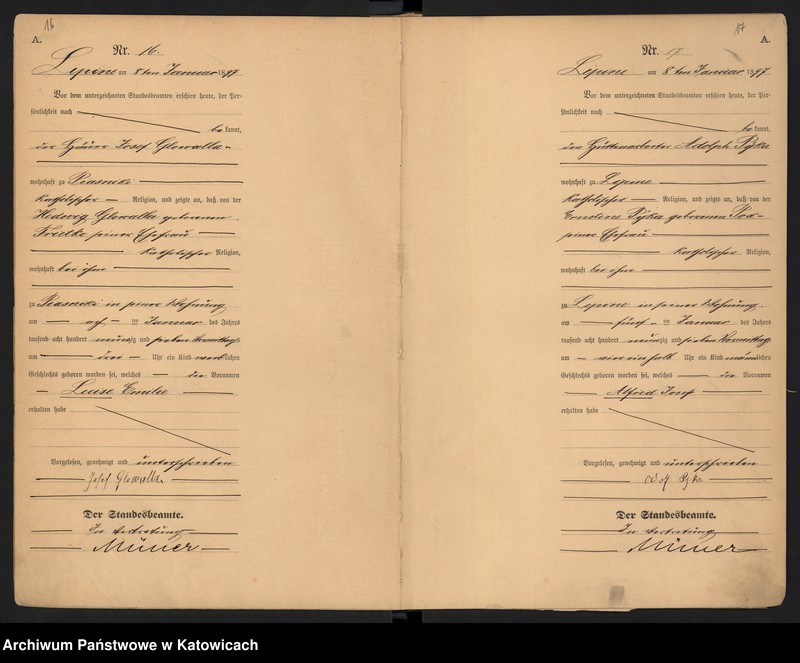 16
A.
Nr. 16.
Lipine am 8ten Januar 1897
Vor dem unterzeichneten Standesbeamten erschien heute, der Per-
sönlichkeit nach
bekannt,
der Häuer Josef Glowalla
wohnhaft zu Piasniki
katholischer Religion, und zeigte an, daß von der
Hedwig Glowalla geborenen
seiner Ehefrau
katholischer Religion,
wohnhaft bei ihm
zu Piasniki in seiner Wohnung
am acht ten Januar des Jahres
tausend acht hundert neunzig und sieben Vormittags
um drei Uhr ein Kind weiblichen
Geschlechts geboren worden sei, welches die Vornamen
Luise Emilie
erhalten habe
Vorgelesen, genehmigt und unterschrieben
Josef Glowalla
Der Standesbeamte.
In Vertretung
17
A.
Nr. 17
Lipine am 8ten Januar 1897
Vor dem unterzeichneten Standesbeamten erschien heute, der Per-
sönlichkeit nach
bekannt,
der Hüttenarbeiter Adolph Pyka
wohnhaft zu Lipine
katholischer Religion, und zeigte an, daß von der
Pyka geborenen
seiner Ehefrau
katholischer Religion,
wohnhaft bei ihm
zu Lipine in seiner Wohnung
am fünf ten Januar des Jahres
tausend acht hundert neunzig und sieben Vormittags
um vier ein halb Uhr ein Kind männlichen
Geschlechts geboren worden sei, welches die Vornamen
Alfred Josef
erhalten habe
Vorgelesen, genehmigt und unterschrieben
Der Standesbeamte.
In Vertretung
Archiwum Państwowe w Katowicach